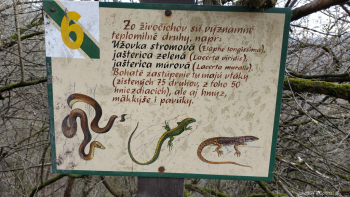 6
Zo živočíchov sú významné
teplomilné druhy, napr.:
Užovka stromová (Elaphe longissima),
jašterica zelená (Lacerta viridis),
jašterica múrová (Lacerta muralis).
Bohaté zastúpenie tu majú vtáky
(zistených 75 druhov, z toho 50
hniezdiacich), ale aj hmyz,
mäkkýše i pavúky.